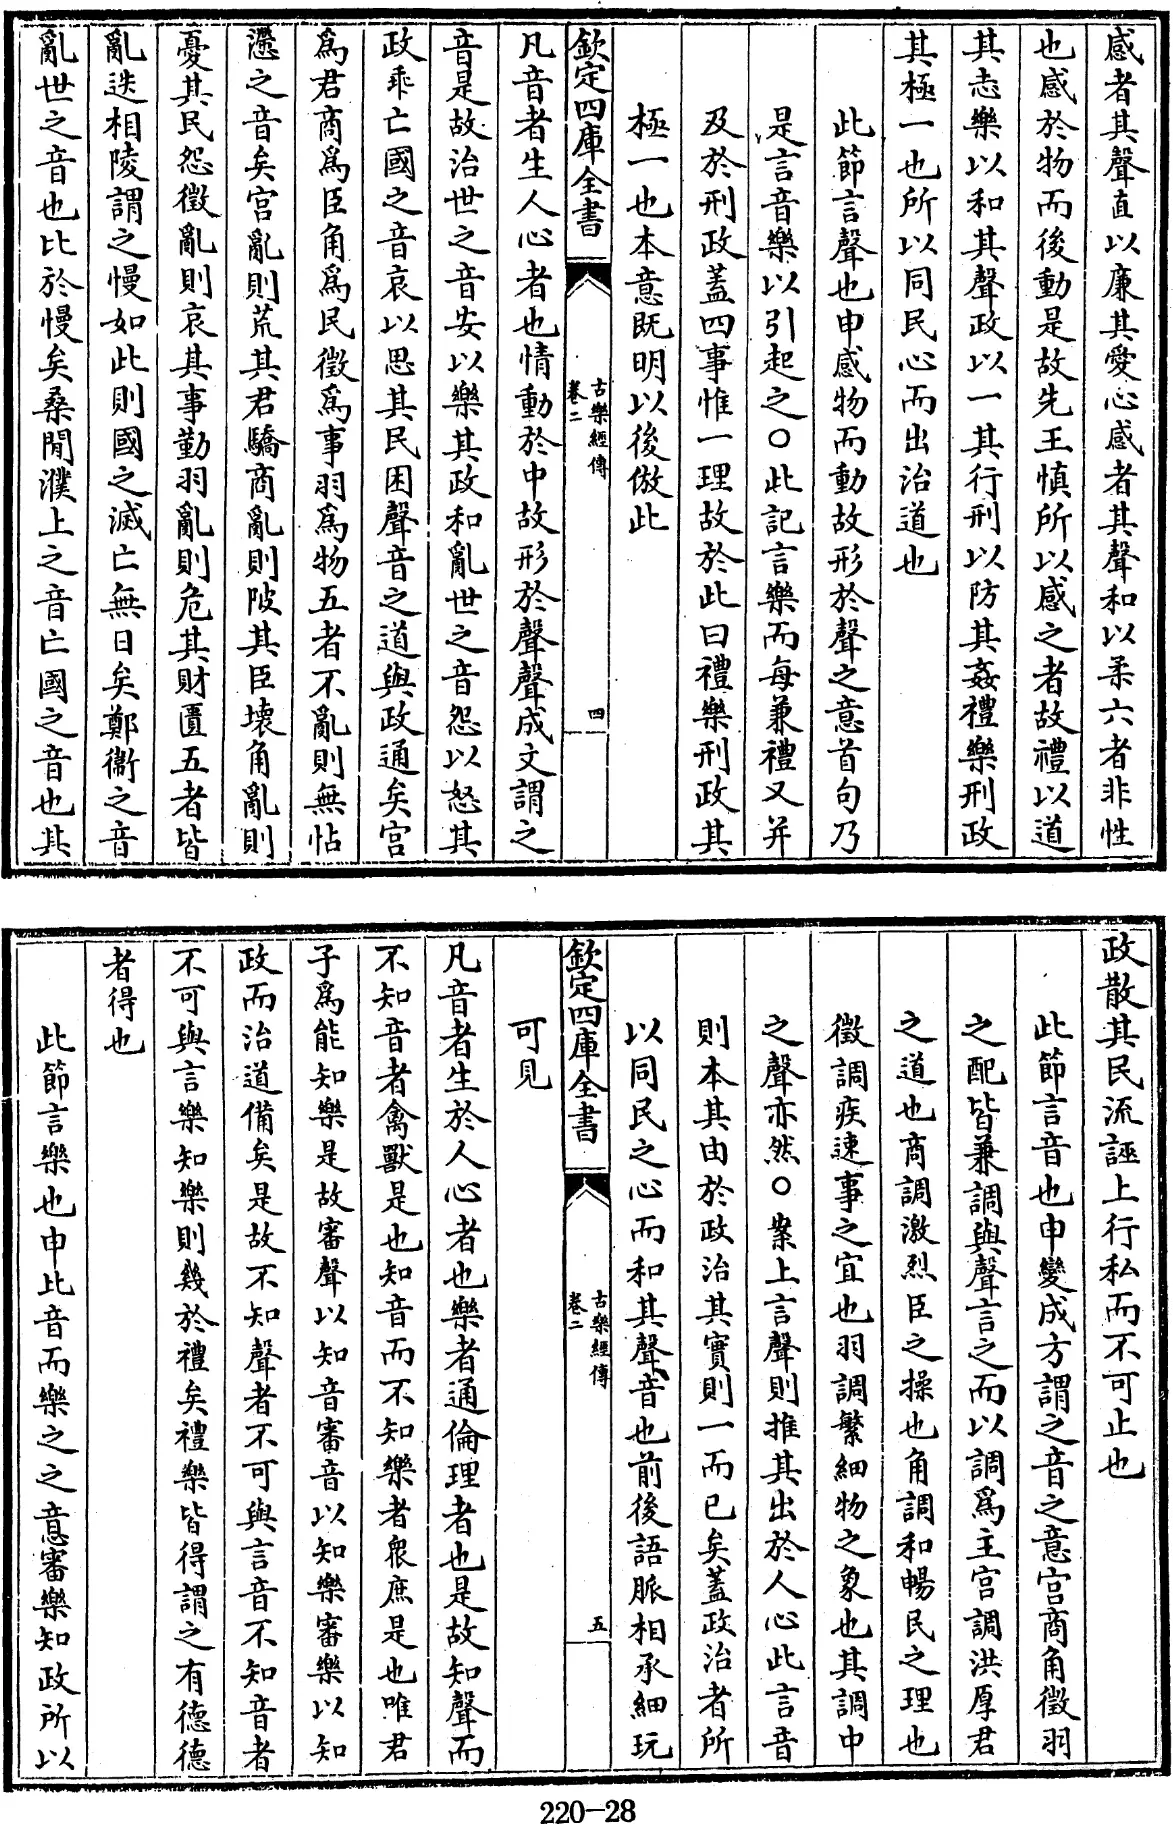 感者其聲直以廉其愛心感者其聲和以柔六者非性
也感於物而後動是故先王慎所以感之者故禮以道
其志樂以和其聲政以一其行刑以防其姦禮樂刑政
其極一也所以同民心而出治道也
此節言聲也申感物而動故形於聲之意首句乃
是言音樂以引起之○此記言樂而每兼禮又并
及於刑政蓋四事惟一理故於此曰禮樂刑政其
極一也本意既明以後倣此
欽定四庫全書
古樂經傳
卷二
四
凡音者生人心者也情動於中故形於聲聲成文謂之
音是故治世之音安以樂其政和亂世之音怨以怒其
政乖亡國之音哀以思其民困聲音之道與政通矣宮
為君商為臣角為民徵為事羽為物五者不亂則無怗
懘之音矣宮亂則荒其君驕商亂則陂其臣壞角亂則
憂其民怨徵亂則哀其事勤羽亂則危其財匱五者皆
亂迭相陵謂之慢如此則國之滅亡無日矣鄭衛之音
亂世之音也比於慢矣桑閒濮上之音亡國之音也其
政散其民流誣上行私而不可止也
此節言音也申變成方謂之音之意宮商角徵羽
之配皆兼調與聲言之而以調為主宮調洪厚君
之道也商調激烈臣之操也角調和暢民之理也
徵調疾速事之宜也羽調繁細物之象也其調中
之聲亦然○案上言聲則推其出於人心此言音
則本其由於政治其實則一而已矣蓋政治者所
以同民之心而和其聲音也前後語脈相承細玩
欽定四庫全書
古樂經傳
卷二
五
可見
凡音者生於人心者也樂者通倫理者也是故知聲而
不知音者禽獸是也知音而不知樂者衆庶是也唯君
子為能知樂是故審聲以知音審音以知樂審樂以知
政而治道備矣是故不知聲者不可與言音不知音者
不可與言樂知樂則幾於禮矣禮樂皆得謂之有德德
者得也
此節言樂也申比音而樂之之意審樂知政所以
220-28